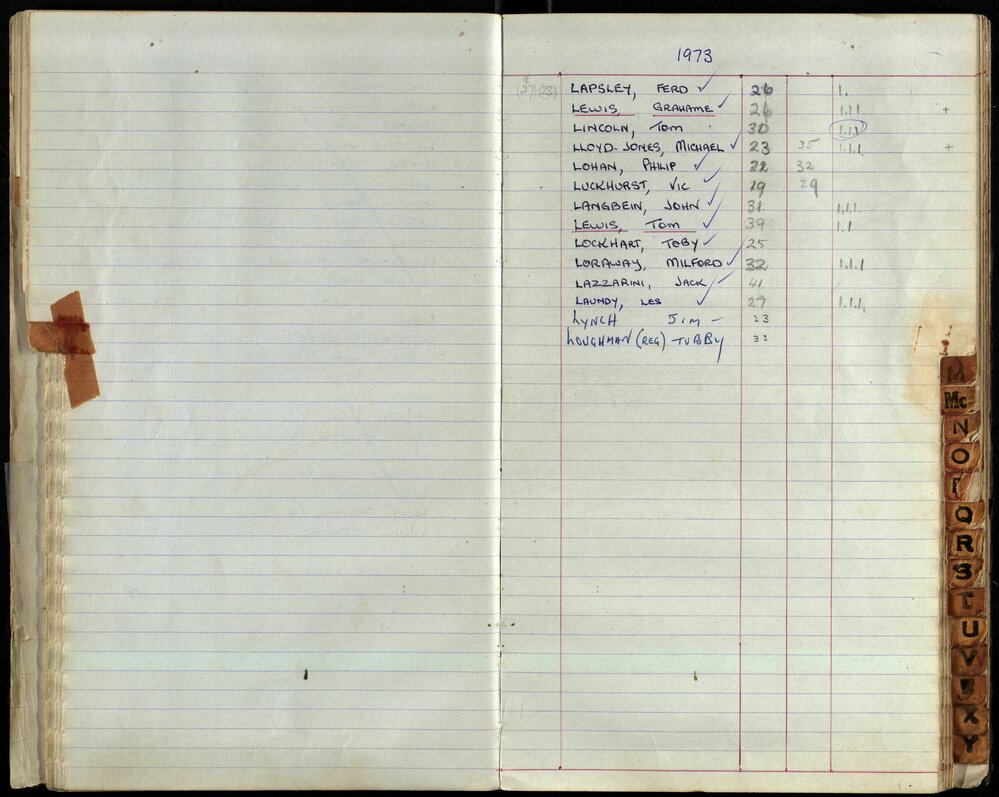 1973
LAPSLEY, FERD ✓ 26 1.
LEWIS, GRAHAME ✓ 26 1.1.1 +
LINCOLN, TOM 30 1.1.1
LLOYD-JONES, MICHAEL ✓ 23 35 1.1.1. +
LOHAN, PHILIP ✓ 22 32
LUCKHURST, VIC ✓ 19 29
LANGBEIN, JOHN ✓ 31 1.1.1.
LEWIS, TOM ✓ 39 1.1
LOCKHART, TOBY ✓ 25
LORAWAY, MILFORD ✓ 32 1.1.1
LAZZARINI, JACK ✓ 41
LAUNDY, LES ✓ 27 1.1.1.
LYNCH JIM – 23
LOUGHMAN (REG) TUBBY
M
Mc
N
O
Q
R
S
T
U
V
X
Y